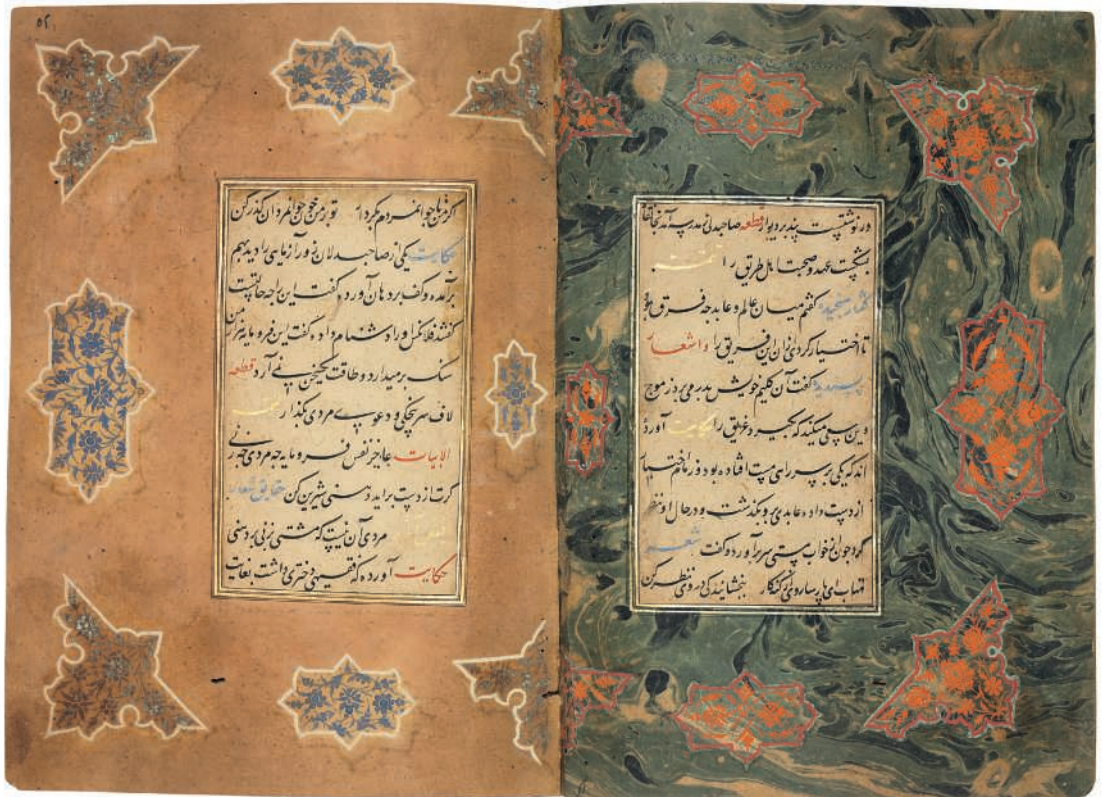 در نوشتست پند بر دیوار قطعه صاحبدلی ز مدرسه آمد بخانقاه
بشکست عهد و صحبت اهل طریق را تتمه
گفتار سنجیده گفتم میان عالم و عابد چه فرق بود
تا اختیار کردی ازان این فریق را واشعار
پسندیده گفت آن گلیم خویش بدر می برد ز موج
وین سعی میکند که بگیرد غریق را حکایت آورده
اند که یکی بر سر راهی مست افتاده بود و زمام اختیار
از دست داده عابدی برو بگذشت و در حال او نظر
کرد جوان از خواب مستی سر برآورد و گفت شعر
متاب ای پارسا روی از گنهکار ببخشایندگی در وی نظر کن
۵۲
اگر من ناجوانمردم بکردار تو بر من چون جوانمردان گذر کن
حکایت یکی از صاحبدلان زورآزمایی را دید بهم
برآمده و کف بر دهان آورده گفت این را چه حالتست
گفتند فلانکس او را دشنام داده گفت این فرومایه هزار من
سنک برمیدارد و طاقت سخنی نمی آرد قطعه
لاف سرپنجگی و دعوی مردی بگذار تتمه
الابیات عاجز نفس فرومایه چه مردی چه زنی
گرت از دست براید دهنی شیرین کن شعار
مردی آن نیست که مشتی بزنی بر دهنی
حکایت آورده که فقیهی دختری داشت بغایت